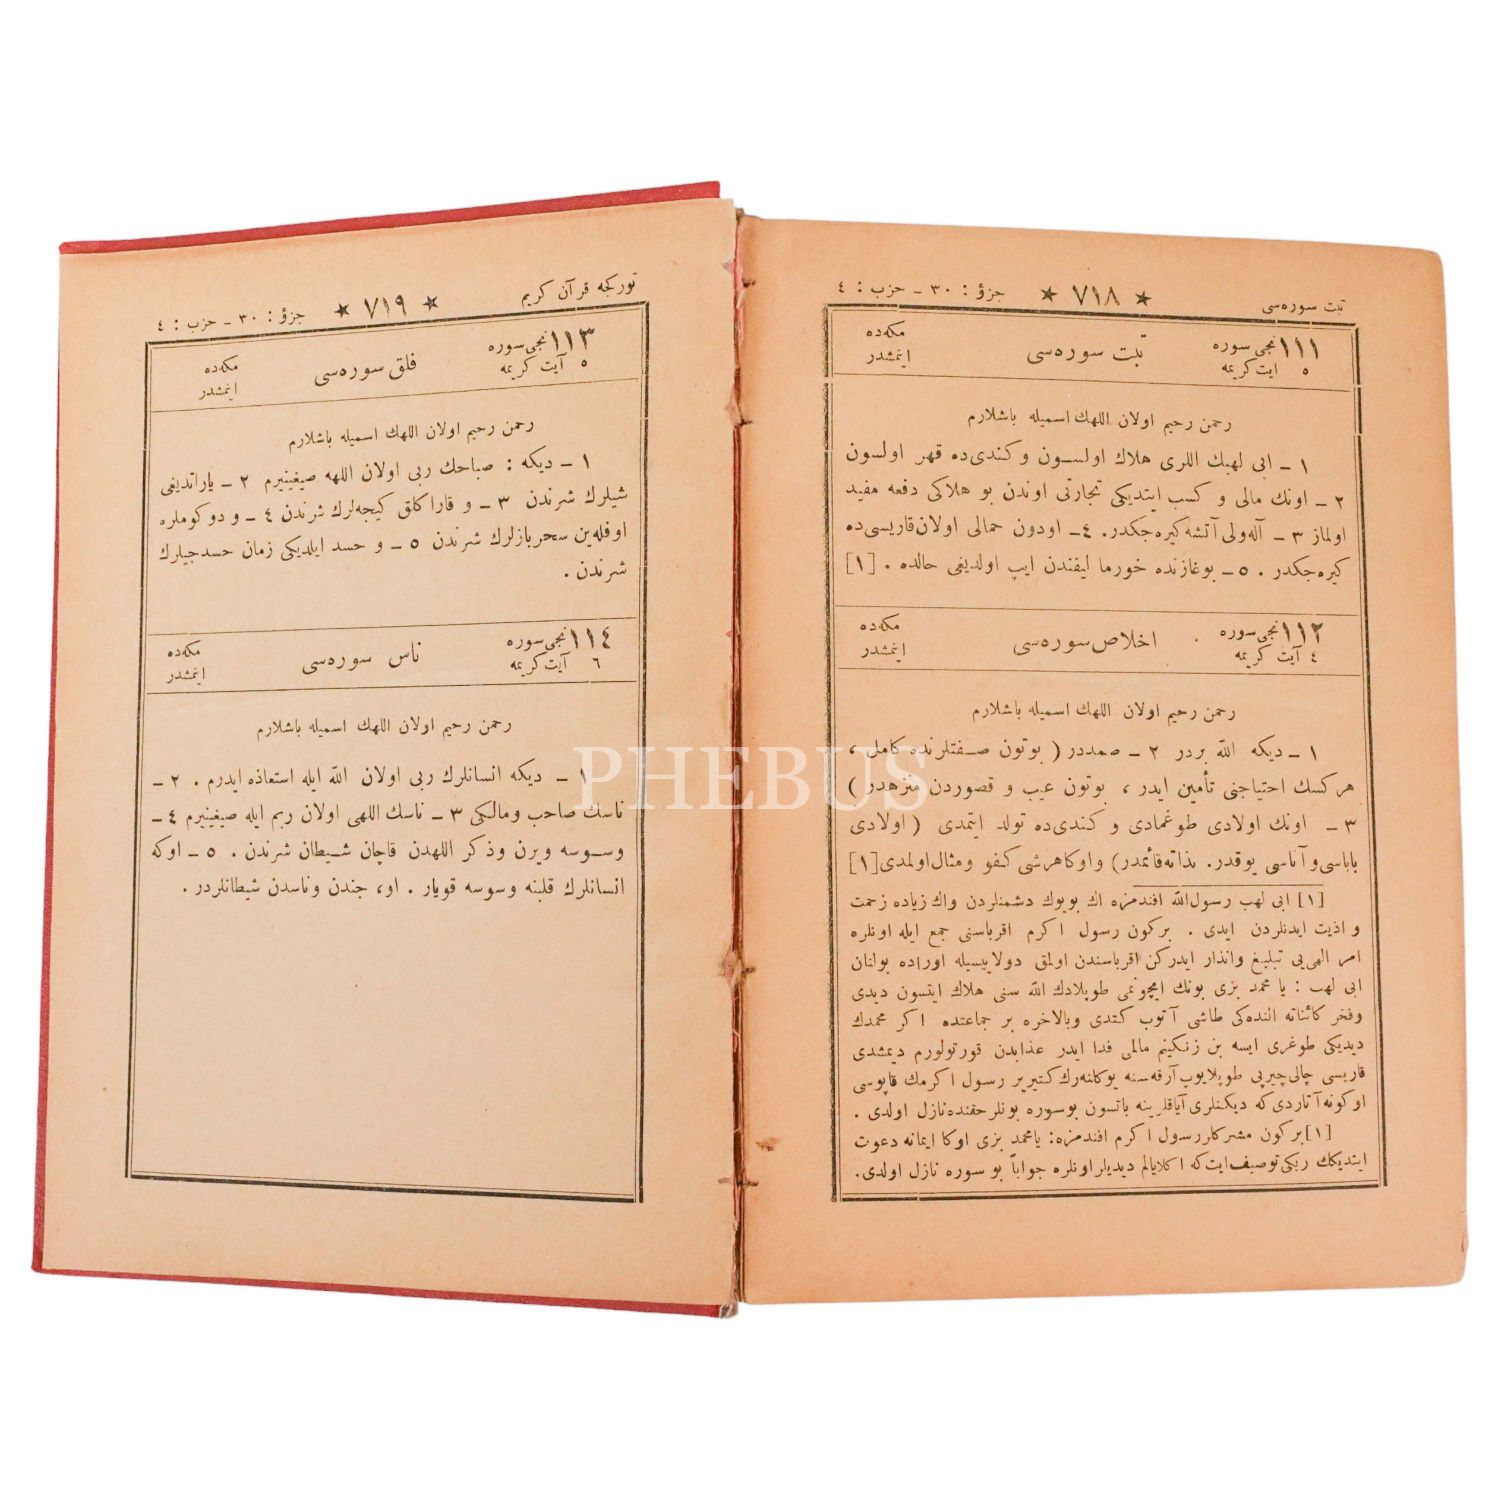 تبت سوره‌سی ★ ٧١٨ ★ جزؤ : ٣٠ ـ حزب : ٤
١١١ نجی سوره تبت سوره‌سی مكه‌ده
٥ آیت كریمه اینمشدر
رحمن رحیم اولان اللهك اسمیله باشلارم
١ ـ ابی لهبك اللری هلاك اولسون و كندی‌ده قهر اولسون
٢ ـ اونك مالی و كسب ایتدیكی تجارتی اوندن بو هلاكی دفعه مفید
اولماز ٣ ـ آله‌ولی آتشه كیره‌جكدر. ٤ ـ اودون حمالی اولان قاریسی‌ده
كیره‌جكدر . ٥ ـ بوغازنده خورما لیفندن ایپ اولدیغی حالده . [١]
١١٢ نجی سوره اخلاص سوره‌سی مكه‌ده
٤ آیت كریمه اینمشدر
رحمن رحیم اولان اللهك اسمیله باشلارم
١ ـ دیكه الله بردر ٢ ـ صمددر ( بوتون صـفتلرنده كامل ،
هركسك احتیاجنی تأمین ایدر ، بوتون عیب و قصوردن منزهدر )
٣ ـ اونك اولادی طوغمادی و كندی‌ده تولد ایتمدی ( اولادی
باباسی و آناسی یوقدر. بذاته قائمدر) و اوكا هرشی كفو ومثال اولمدی [١]
[١] ابی لهب رسول‌الله افندمزه اك بویوك دشمنلردن واك زیاده زحمت
و اذیت ایدنلردن ایدی . بركون رسول اكرم اقرباسنی جمع ایله اونلره
امر الهی‌یی تبلیغ وانذار ایدركن اقرباسندن اولمق دولاییسیله اوراده بولنان
ابی لهب : یا محمد بزی بونك ایچونمی طوپلادك الله سنی هلاك ایتسون دیدی
وفخر كائناته النده‌كی طاشی آتوب كتدی وبالاخره بر جماعتده اكر محمدك
دیدیكی طوغری ایسه بن زنكینم مالمی فدا ایدر عذابدن قورتولورم دیمشدی
قاریسی چالی چیرپی طوپلایوب آرقه‌سنه یوكلنه‌رك كتیریر رسول اكرمك قاپوسی
اوكونه آتاردی كه دیكنلری آیاقلرینه باتسون بو سوره بونلر حقنده نازل اولدی .
[١] بركون مشركلر رسول اكرم افندمزه: یا محمد بزی اوكا ایمانه دعوت
ایتدیكك ربكی توصیف ایت كه اكلایالم دیدیلر اونلره جواباً بو سوره نازل اولدی.
توركجه قرآن كریم ★ ٧١٩ ★ جزؤ : ٣٠ ـ حزب : ٤
١١٣ نجی سوره فلق سوره‌سی مكه‌ده
٥ آیت كریمه اینمشدر
رحمن رحیم اولان اللهك اسمیله باشلارم
١ ـ دیكه : صباحك ربی اولان اللهه صیغینیرم ٢ ـ یاراتدیغی
شیلرك شرندن ٣ ـ و قاراكلق كیجه‌لرك شرندن ٤ ـ و دوكوملره
اوفله‌ین سحربازلرك شرندن ٥ ـ و حسد ایلدیكی زمان حسدجیلرك
شرندن .
١١٤ نجی سوره ناس سوره‌سی مكه‌ده
٦ آیت كریمه اینمشدر
رحمن رحیم اولان اللهك اسمیله باشلارم
١ ـ دیكه انسانلرك ربی اولان الله ایله استعاذه ایدرم . ٢ ـ
ناسك صاحب ومالكی ٣ ـ ناسك اللهی اولان ربم ایله صیغینیرم ٤ ـ
وسـوسه ویرن وذكر اللهدن قاچان شـیطان شرندن . ٥ ـ اوكه
انسانلرك قلبنه وسوسه قویار . او، جندن وناسدن شیطانلردر .
PHEBUS